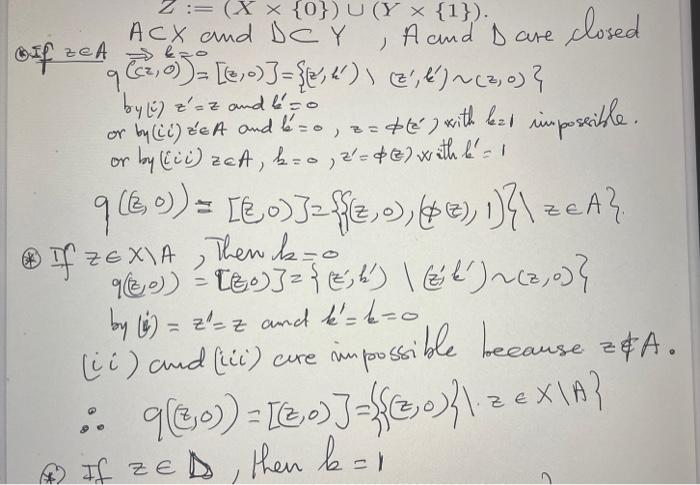 Z := (X × {0}) ∪ (Y × {1}).
A⊂X and D⊂Y , A and D are closed
⊛ If z∈A ⇒ k=0
q((z,0)) = [(z,0)] = {(z',k') \ (z',k') ~ (z,0)}
by (i) z'=z and k'=0
or by (ii) z'∈A and k'=0, z=ϕ(z') with k=1 impossible.
or by (iii) z∈A, k=0, z'=ϕ(z) with k'=1
q((z,0)) = [(z,0)] = {{(z,0),(ϕ(z),1)} \ z∈A}.
⊛ If z∈X\A , Then k=0
q((z,0)) = [(z,0)] = {(z',k') \ (z',k') ~ (z,0)}
by (i) = z'=z and k'=k=0
(ii) and (iii) are impossible because z∉A.
∴ q((z,0)) = [(z,0)] = {{(z,0)} \. z∈X\A}
⊛ If z∈D, then k=1